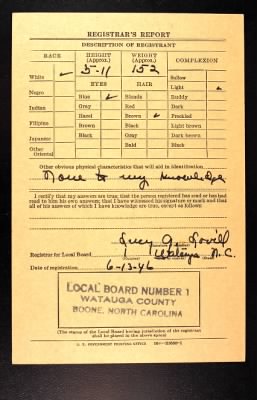 REGISTRAR'S REPORT
DESCRIPTION OF REGISTRANT
RACE
HEIGHT (Approx.)
WEIGHT (Approx.)
COMPLEXION
5-11
152
White ✓
EYES
HAIR
Sallow
Light ✓
Negro
Blue ✓
Blonde
Ruddy
Indian
Gray
Red
Dark
Hazel
Brown ✓
Freckled
Filipino
Brown
Black
Light brown
Japanese
Black
Gray
Dark brown
Other Oriental
Bald
Black
Other obvious physical characteristics that will aid in identification
None to my knowledge
I certify that my answers are true; that the person registered has read or has had
read to him his own answers; that I have witnessed his signature or mark and that
all of his answers of which I have knowledge are true, except as follows:
Lucy
Registrar for Local Board Watauga N.C.
Date of registration 6-13-46
LOCAL BOARD NUMBER 1
WATAUGA COUNTY
BOONE, NORTH CAROLINA
(The stamp of the Local Board having jurisdiction of the registrant
shall be placed in the above space)
U. S. GOVERNMENT PRINTING OFFICE